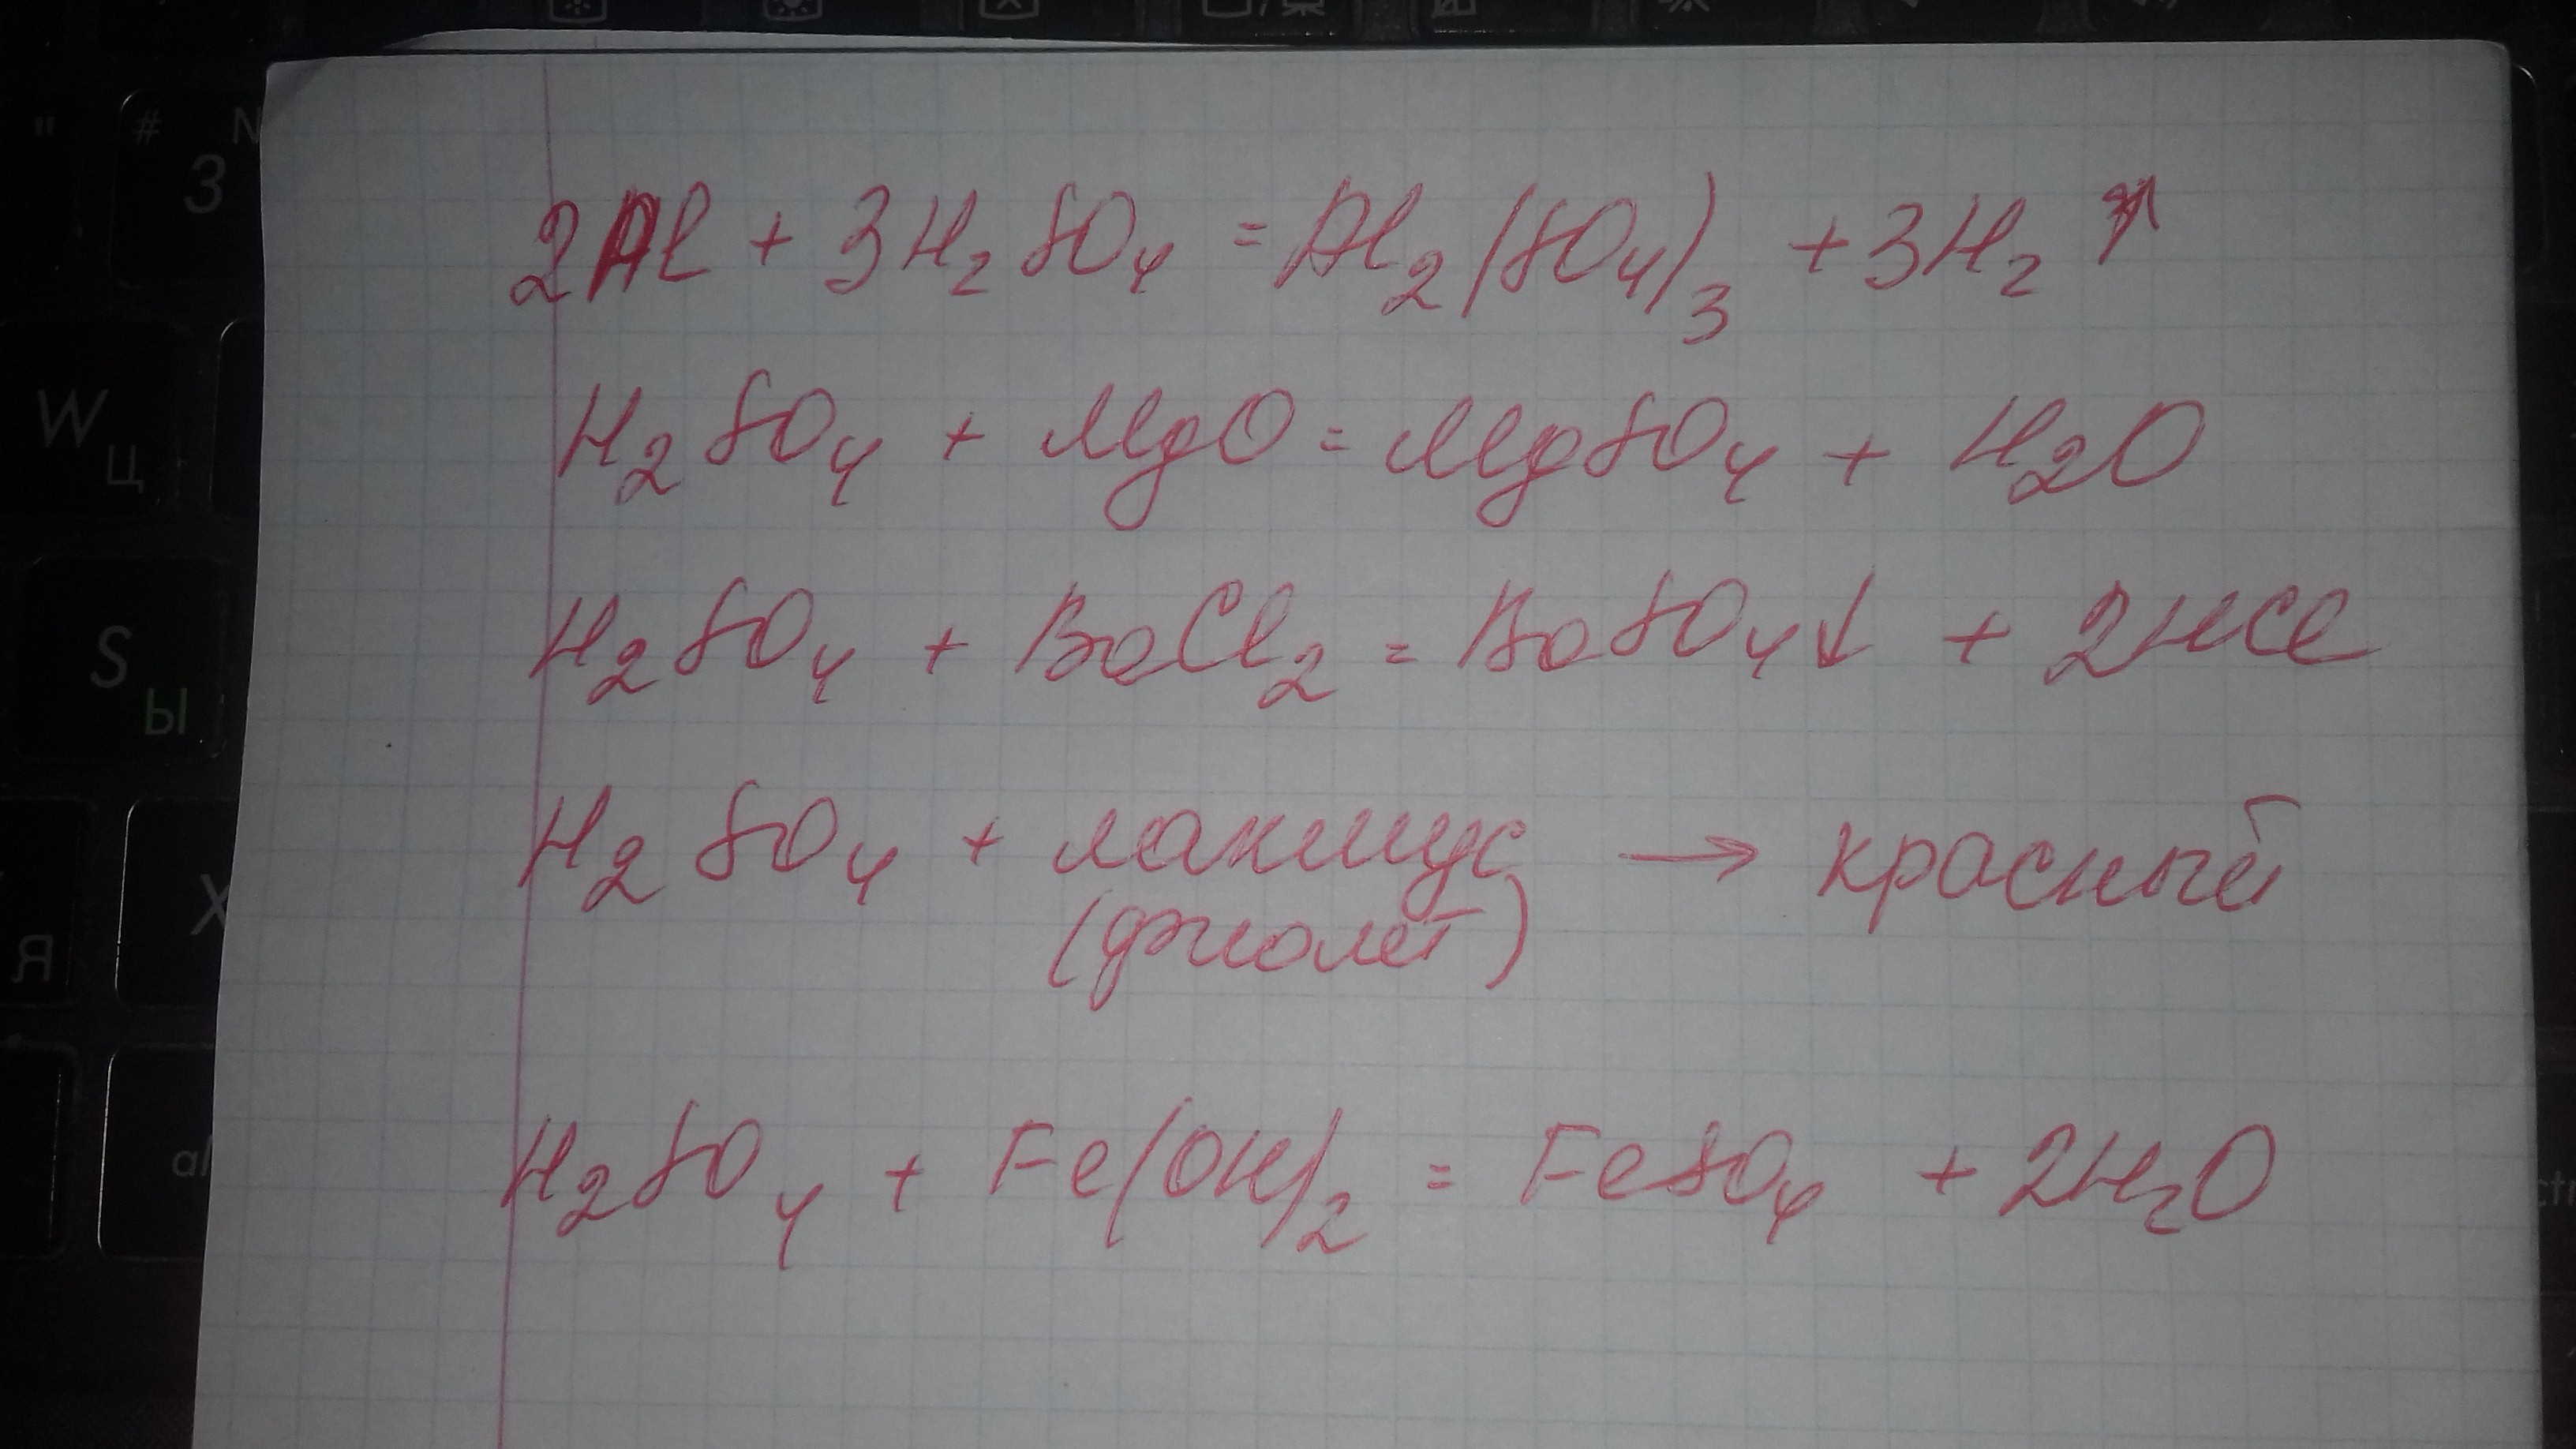 2Al + 3H₂SO₄ = Al₂(SO₄)₃ + 3H₂↑
H₂SO₄ + MgO = MgSO₄ + H₂O
H₂SO₄ + BaCl₂ = BaSO₄↓ + 2HCl
H₂SO₄ + лакмус → красный
(фиолет)
H₂SO₄ + Fe(OH)₂ = FeSO₄ + 2H₂O
#
3
W
Ц
S
Ы
X
Я